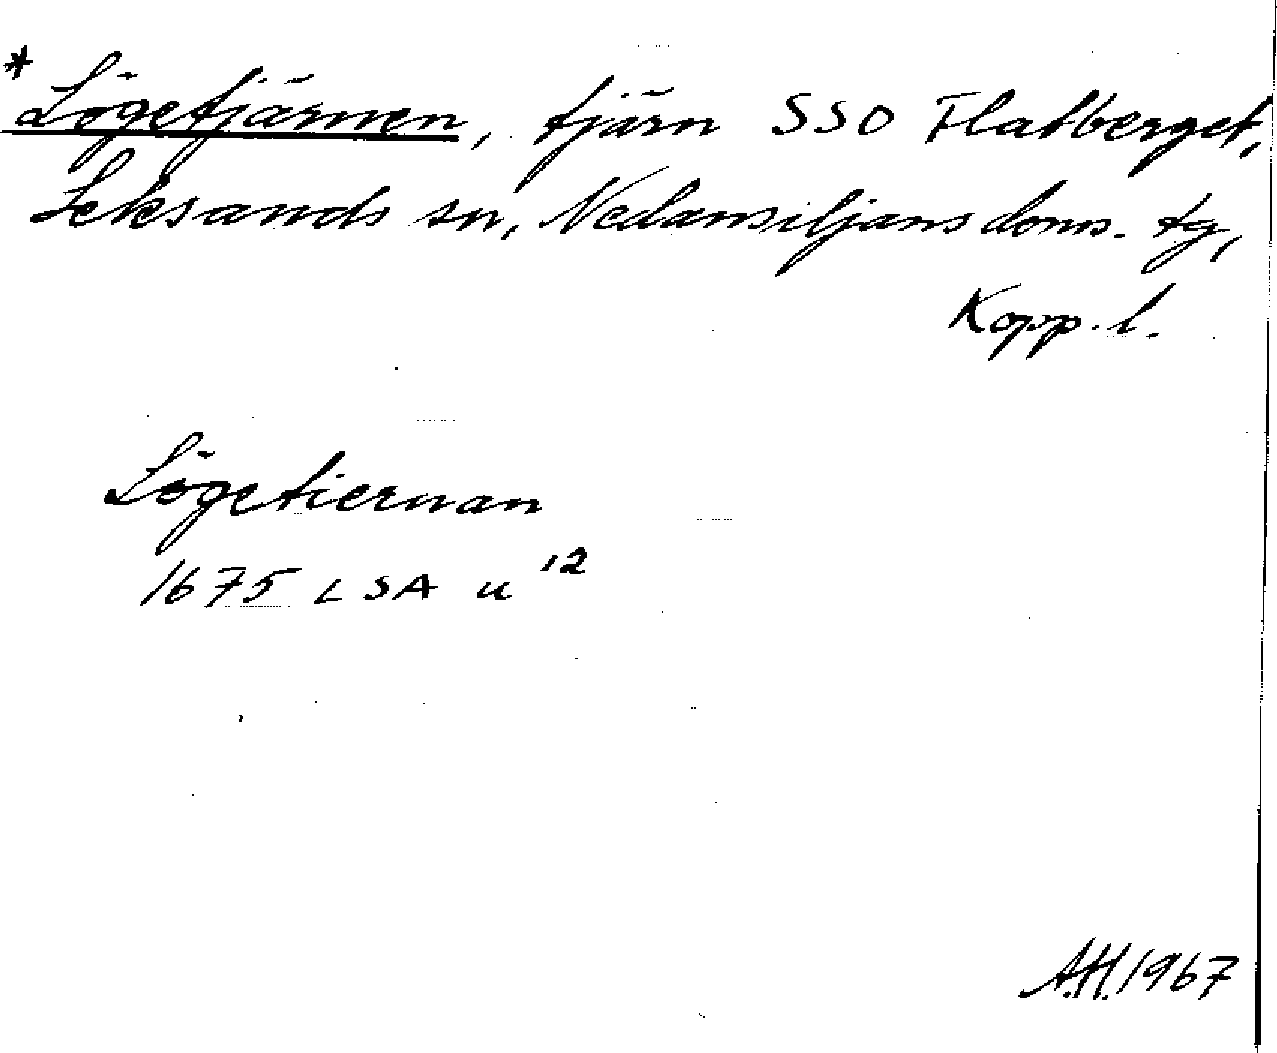 *Lögetjärnen, tjärn SSO Flatberget,
Leksands sn, Nedansiljans doms. tg,
Kopp. l.
Lögetiernan
1675 LSA u 12
A.H. 1967